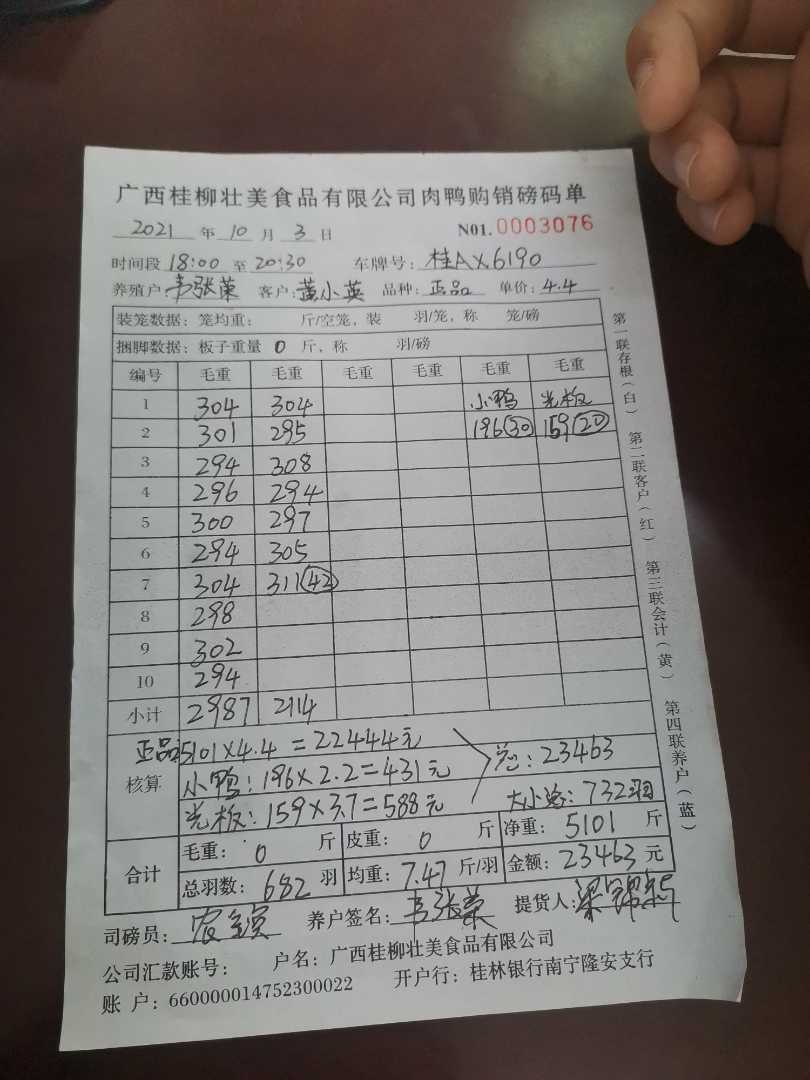 广西桂柳壮美食品有限公司肉鸭购销磅码单
2021 年 10 月 3 日 N01.0003076
时间段 18:00 至 20:30 车牌号: 桂AX6190
养殖户: 韦张荣 客户: 黄小英 品种: 正品 单价: 4.4
装笼数据: 笼均重: 斤/空笼, 装 羽/笼, 称 笼/磅
捆脚数据: 板子重量 0 斤, 称 羽/磅
编号 毛重 毛重 毛重 毛重 毛重 毛重
1 304 304 小鸭 光板
2 301 295 196(30) 159(20)
3 294 308
4 296 294
5 300 297
6 294 305
7 304 311(42)
8 298
9 302
10 294
小计 2987 2114
核算
正品:5101×4.4=22444元
小鸭:196×2.2=431元 总:23463
光板:159×3.7=588元 大小总:732羽
合计
毛重: 0 斤 皮重: 0 斤 净重: 5101 斤
总羽数: 682 羽 均重: 7.47 斤/羽 金额: 23463 元
司磅员: 养户签名: 韦张荣 提货人:
公司汇款账号: 户名: 广西桂柳壮美食品有限公司
账 户: 660000014752300022 开户行: 桂林银行南宁隆安支行
第一联存根(白) 第二联客户(红) 第三联会计(黄) 第四联养户(蓝)